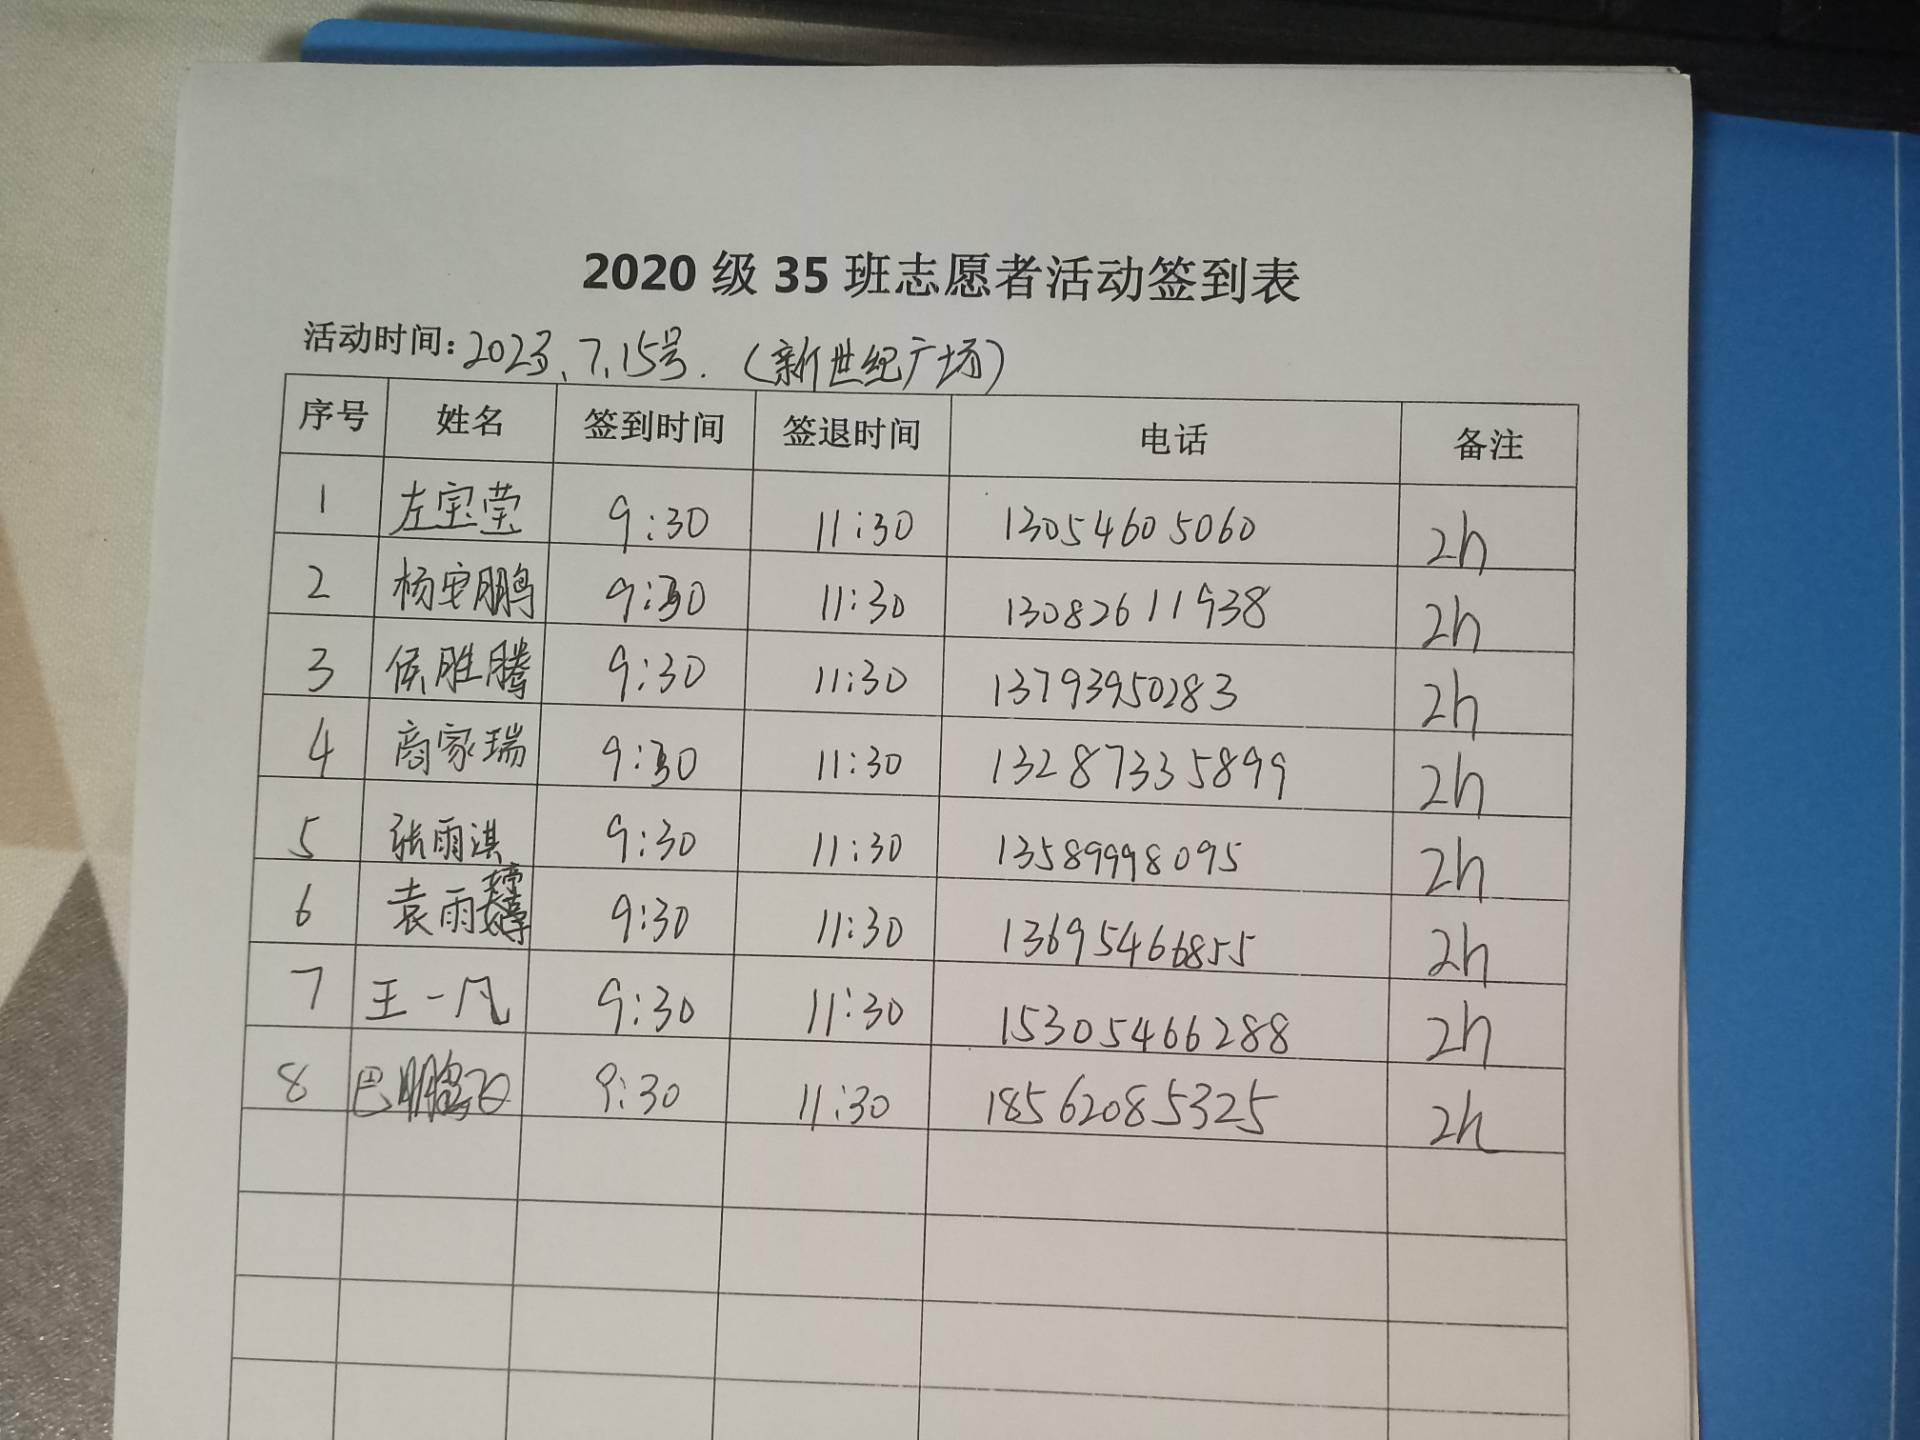 2020 级 35 班志愿者活动签到表
活动时间：2023.7.15号.（新世纪广场）
序号 姓名 签到时间 签退时间 电话 备注
1 左宝莹 9:30 11:30 13054605060 2h
2 杨安鹏 9:30 11:30 13082611938 2h
3 侯胜腾 9:30 11:30 13793950283 2h
4 商家瑞 9:30 11:30 13287335899 2h
5 张雨淇 9:30 11:30 13589998095 2h
6 袁雨 9:30 11:30 13695466855 2h
7 王一凡 9:30 11:30 15305466288 2h
8 巴鹏飞 9:30 11:30 18562085325 2h